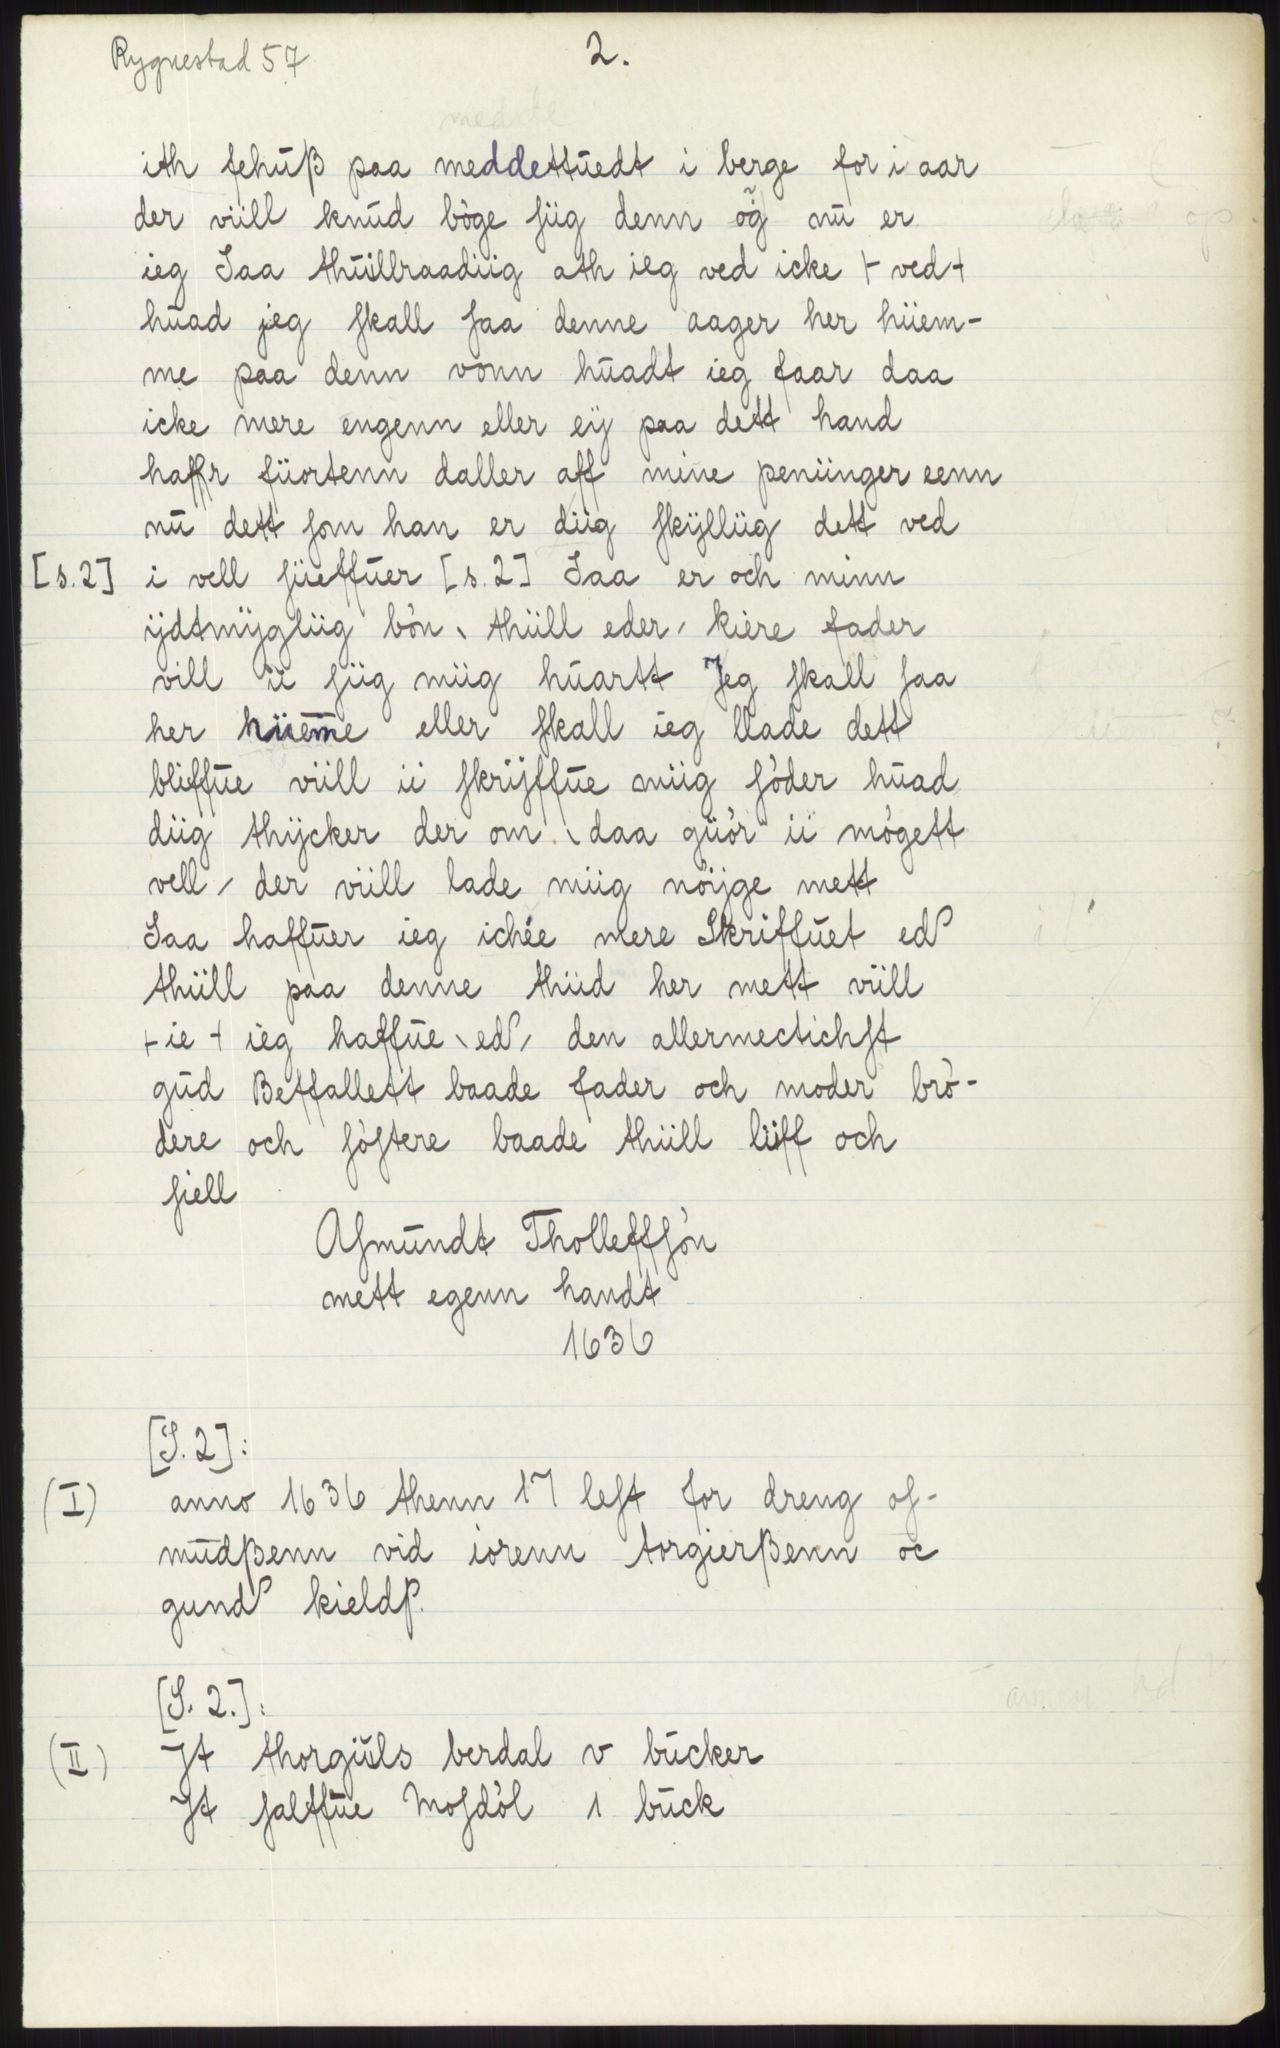 Rygnestad 57
2.
medde
ith fehūß paa meddettūedt i berge for i aar
der viill knūd bòge ſiig denn og nū er
ieg Saa thūillraadiig ath ieg ved icke ⊢ ved ⊣
hūad jeg ſkall ſaa denne aager her hiiem-
me paa denn vonn hūadt ieg faar daa
icke mere engenn eller eÿ paa dett hand
haffr fiiortenn daller aff mine peniinger eenn
nū dett ſom han er diig ſkÿlliig dett ved
[s.2] i vell ſiieffūer [s.2] Saa er och minn
ÿdtmÿgliig bòn, thiill eder, kiere fader
vill ii ſiig miig hūartt Jeg ſkall ſaa
her hiiem̄e eller ſkall ieg llade dett
bliffūe viill ii ſkrÿffūe miig fòder hūad
diig thÿcker der om, daa giiòr ii mògett
vell, der viill lade miig nòijge mett
Saa haffūer ieg ichée mere Skriffūet ed
thiill paa denne thiid her mett viill
⊢ ie ⊣ ieg haffūe, ed, den allermectichſt
gūd Beffallett baade fader och moder brò-
dere och ſòſtere baade thiill liiff och
ſiell
Aſmūndt Tholleffſòn
mett egenn handt
1636
[S.2]:
(I) anno 1636 thenn 17 leſt for dreng oſ-
mūdßenn vid iorenn torgierßenn oc
gund kieldß.
[S. 2.]:
(II) Jt thorgiūls berdal v būcker
Jt ſalffūe Moſdòl 1 būck